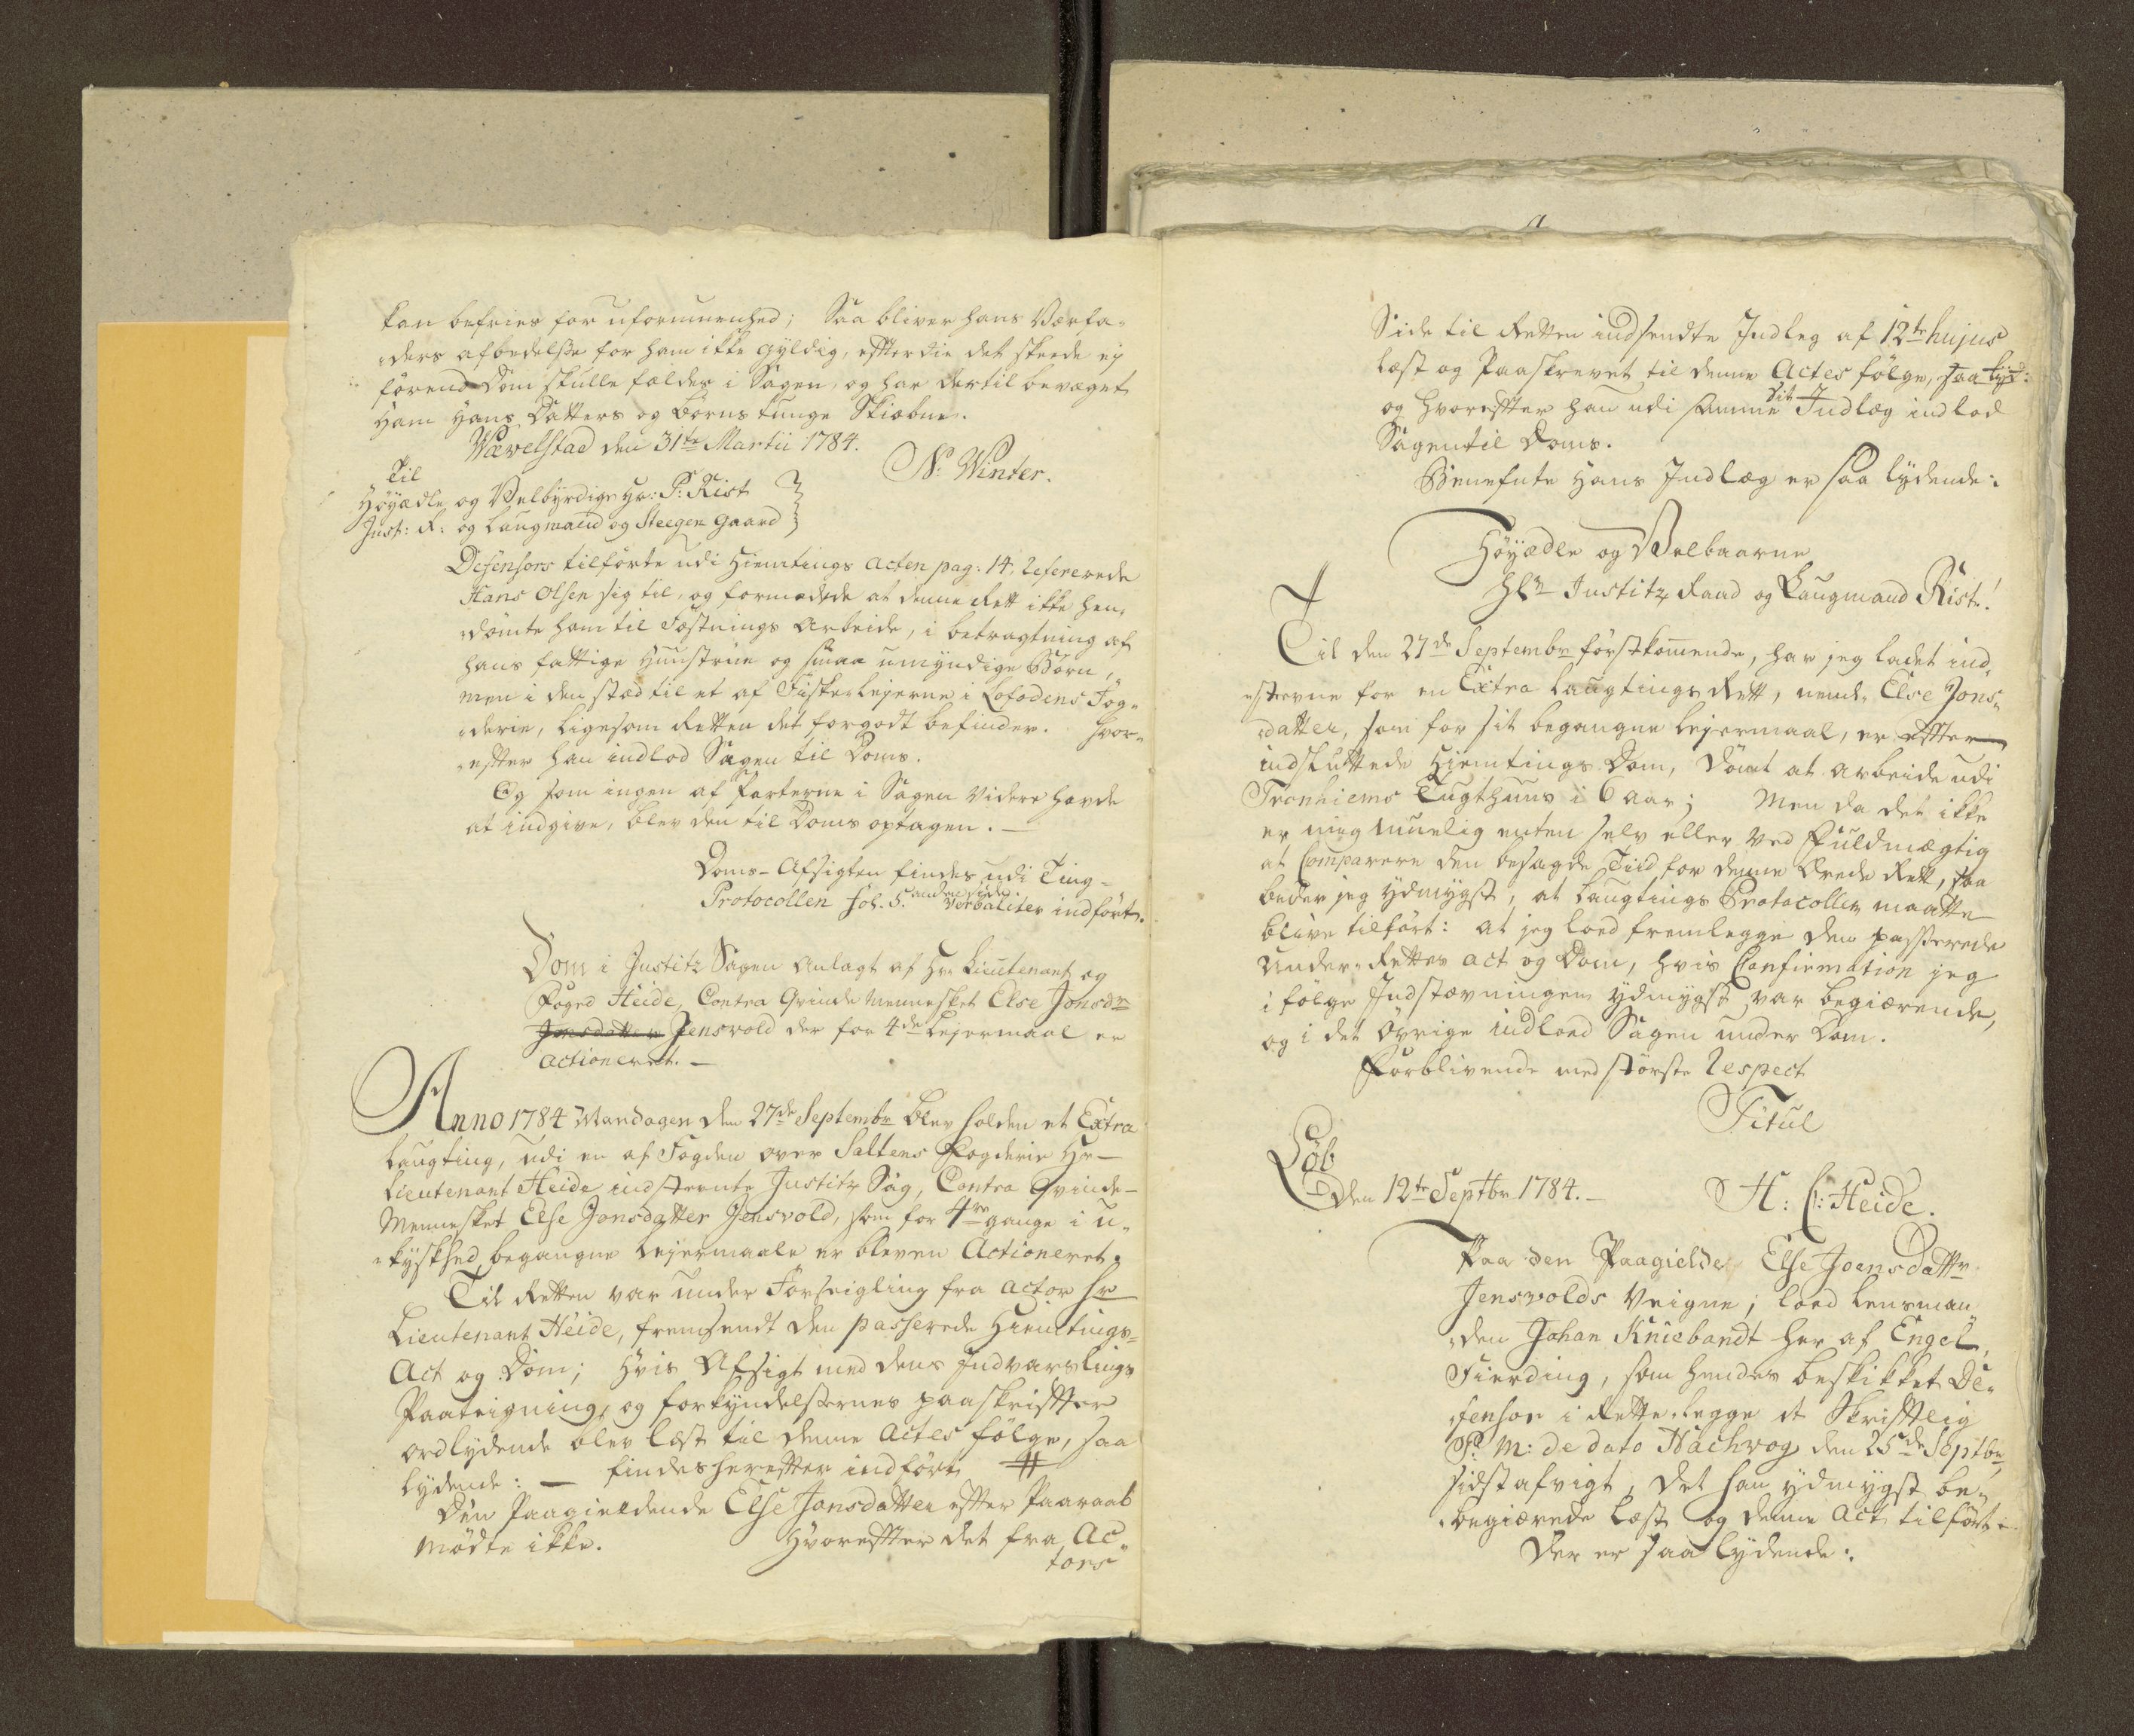 kan befries for uformuenhed; Saa bliver hans Værfa-
ders afbedelse for ham ikke gyldig, efterdie det skeede ej
förend Dom skulle falder i Sagen, og har dertil bevæget
Ham Hans Datters og Börns tunge Skiæbne.
Wævelstad den 31te Martii 1784.
N: Winter.
Til
Höyædle og Velbyrdige Hr: P: Rist
Just: R: og Laugmand og Steegen gaard
Defensors tilförte udi Hiemtings acten pag: 14, refererede
Hans Olsen sig til, og formodede at denne Rett ikke hen-
dömte ham til Fæstnings Arbeide, i betragtning af
hans fattige Huustrue og smaa umyndige Börn,
men i den stæd til et af Fiskerlejerne i Lofodens Fog-
derie, ligesom Retten det forgodt befinder. Hvor-
efter han indlod Sagen til Doms.
Og som ingen af Parterne i Sagen videre havde
at indgive, blev den til Doms optagen. —
Doms-Afsigten findes udi Ting-
Protocollen fol. 5. anden side. verbaliter indfört.
Dom i Justitz Sagen anlagt af Hr: Lieutenant og
Foged Heide, Contra Qvinde Mennesket Else Jonsdr
Jonsdatter Jensvold der for 4de Lejermaal er
actioneret. —
Anno 1784 Mandagen den 27de Septembr blev holden et Extra
Laugting, udi en af Fogden over Saltens Fogderie Hr
Lieutenant Heide indstevnte Justitz Sag, Contra Qvinde-
Mennesket Else Jonsdatter Jensvold, som for 4re gange i u-
kyskhed begangne Lejermaale er bleven Actioneret.
Til Retten var under Forseigling fra actor Hr
Lieutenant Heide, fremsendt den passerede Hiemtings-
Act og Dom; Hvis Afsigt med dens Indvarslings
Paateigning, og forkyndelsernes paaskrifter
ordlydende blev læst til denne Actes fölge, saa
lydende: — findes herefter indfört #
Den Paagieldende Else Jonsdatter efter Paaraab
mödte ikke. Hvorefter det fra Ac-
tors
Side til Retten indsendte Indleg af 12te hujus
læst og Paaskrevet til denne Actes fölge, saa lyd:
og hvorefter han udi samme sit Indlæg indlod
Sagen til Doms.
Benefnte Hans Indlæg er saa lydende:
Höyædle og Velbaarne
Hr Justitz Raad og Laugmand Rist!
Til den 27de Septembr förstkommende, har jeg ladet ind-
stevne for en Extra Laugtings Rett, nemlig Else Jons-
datter, som for sit begangne Lejermaal, er efter
indsluttede Hiemtings Dom, dömt at arbeide udi
Tronhiems Tugthuus i 6 aar; Men da det ikke
er mig muelig enten selv eller ved Fuldmægtig
at Comparere den besagde Tiid for denne Ærede Rett, saa
beder jeg ydmygst, at Laugtings Protocollen maatte
blive tilfört: at jeg loed fremlegge den passerede
Under-Rettes act og Dom, hvis Confirmation jeg
i fölge Indstævningen ydmygst var begiærende,
og i det övrige indloed Sagen under Dom.
Forblivende med störste respect
Titul
Löb
Den 12te Septbr 1784. —
H: C: Heide.
Paa den Paagielde Else Joensdattr
Jensvolds Veigne; loed Lensman-
den Johan Kniebandt her af Engel-
Fierding, som hendes beskikket De-
fensor i Rette legge et Skriftlig
P: M: de dato Nachvog den 25de Septbr
sidstafvigt, det han ydmygst be-
begiærede læst og denne Act tilfört.
Der er saa lydende: